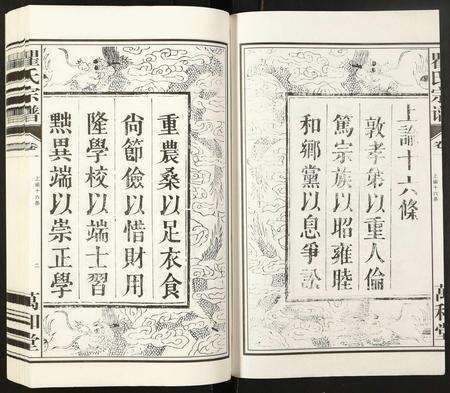 上諭十六條
敦孝弟以重人倫
篤宗族以昭雍睦
和鄉黨以息爭訟
重農桑以足衣食
尙節儉以惜財用
隆學校以端士習
黜異端以崇正學
瞿氏宗譜
卷一
上諭十六條
二
萬和堂
瞿氏宗譜
卷
上諭十六條
萬和堂